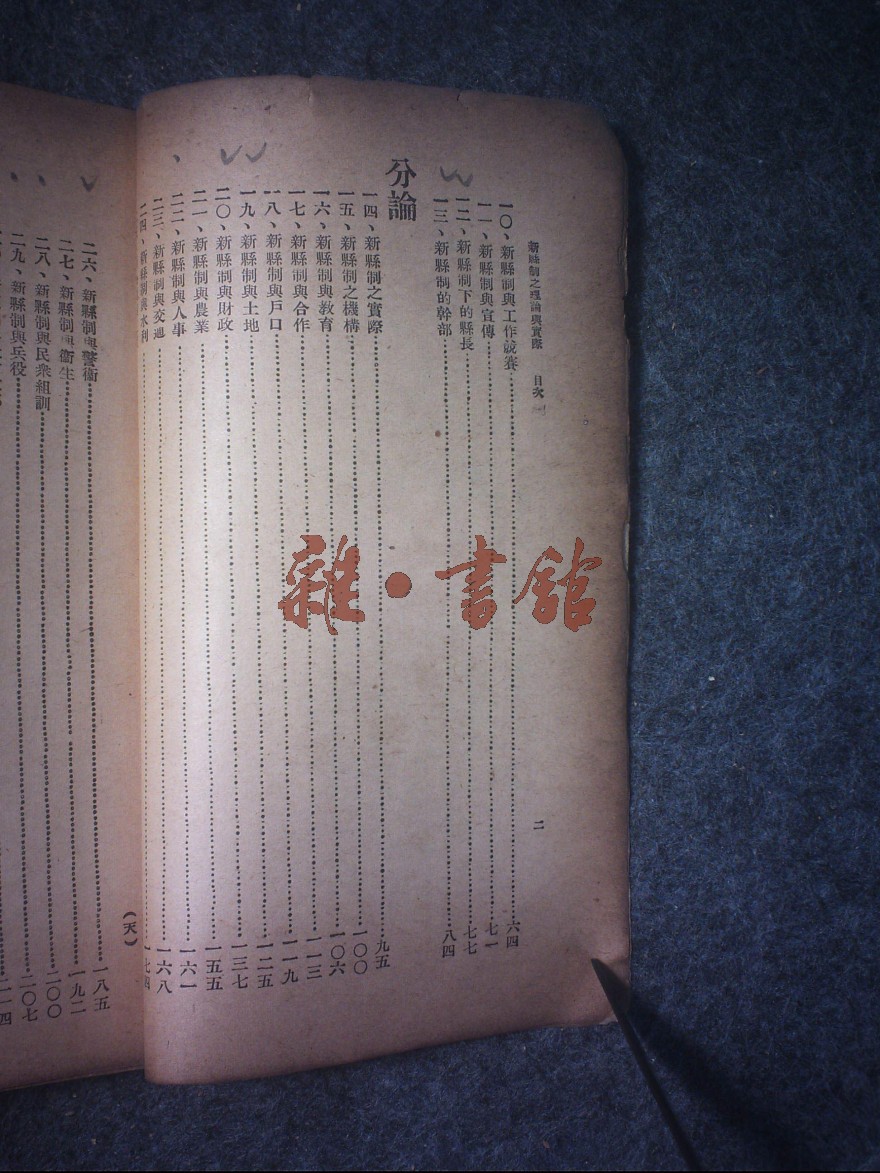 新縣制之理論與實際　目次　二
一〇、新縣制與工作競賽……六四
一一、新縣制與宣傳……七一
一二、新縣制下的縣長……七七
一三、新縣制的幹部……八四
分論
一四、新縣制之實際……九五
一五、新縣制之機構……一〇〇
一六、新縣制與教育……一〇六
一七、新縣制與合作……一一三
一八、新縣制與戶口……一一九
一九、新縣制與土地……一二五
二〇、新縣制與財政……一三七
二一、新縣制與農業……一五五
二二、新縣制與人事……一六一
二三、新縣制與交通……一六八
二四、新縣制與水利……一七四
（天）
二六、新縣制與警衛……一八五
二七、新縣制與衞生……一九二
二八、新縣制與民衆組訓……二〇〇
二九、新縣制與兵役……二〇七
二一四
雜·書館